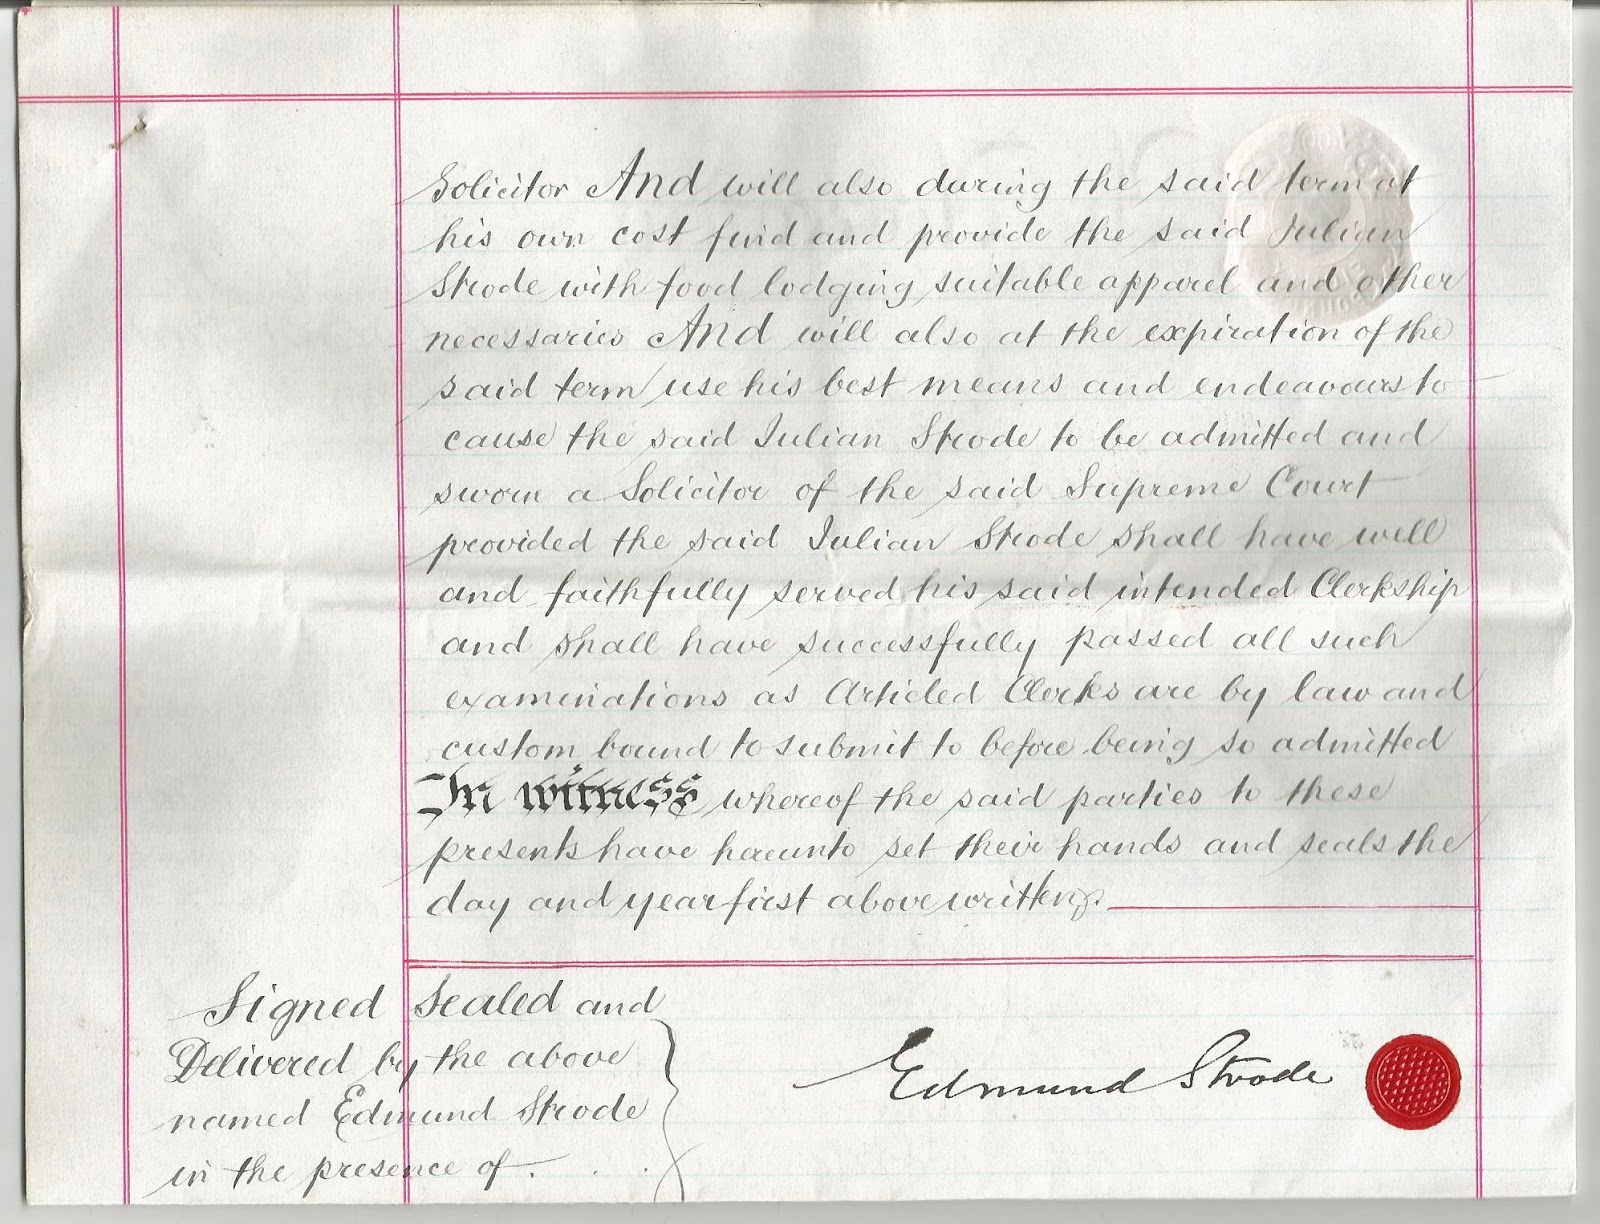 Solicitor And will also during the said term at
his own cost find and provide the said Julian
Strode with food lodging suitable apparel and other
necessaries And will also at the expiration of the
said term use his best means and endeavours to
cause the said Julian Strode to be admitted and
sworn a Solicitor of the said Supreme Court
provided the said Julian Strode shall have well
and faithfully served his said intended Clerkship
and shall have successfully passed all such
examinations as Articled Clerks are by law and
custom bound to submit to before being so admitted
In witness whereof the said parties to these
presents have hereunto set their hands and seals the
day and year first above written
Signed Sealed and
Delivered by the above
named Edmund Strode
in the presence of . . .
Edmund Strode